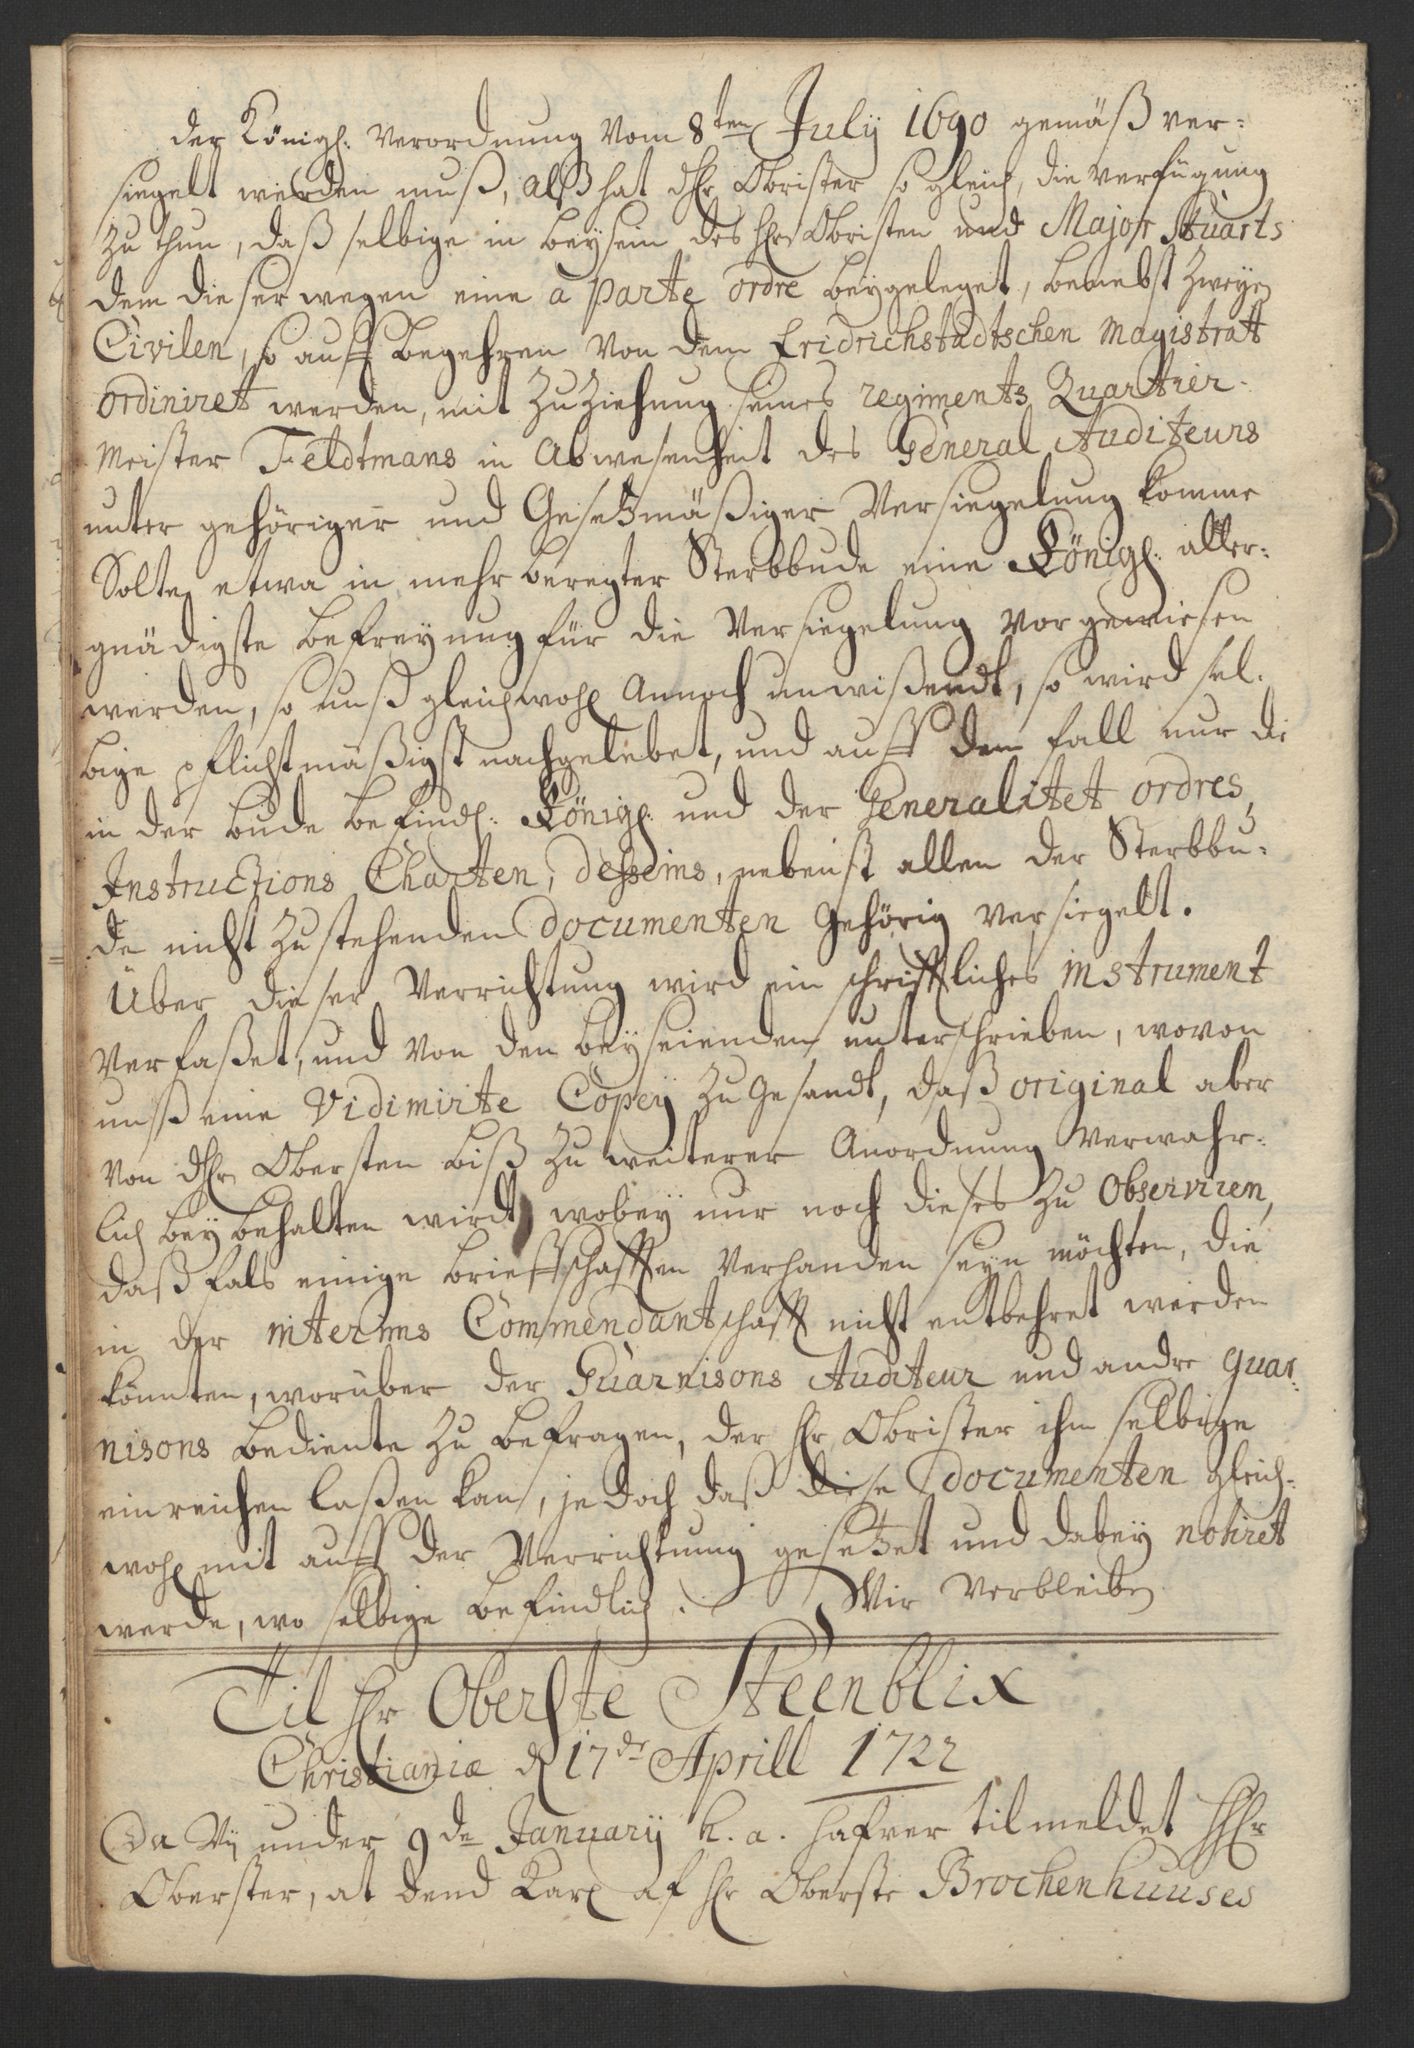 der Königl. Verordnung vom 8ten July 1690 gemäß ver-
siegelt werden muß, alß hat dHr Obrister so gleich, die verfügung
zu thun, daß selbige in beysein des Hrn Obristen und Major Stuarts
dem dieserwegen eine a parte ordre beygeleget, benebst zweyen
Civilen, so auff begehren von dem Fridrichstadtschen Magistratt
ordiniret werden, mit Zuziehung seines regiments Quartier-
Meister Feldtmans in Abwesenheit des General Auditeurs
unter gehöriger und Gesetzmäßiger Versiegelung komme
Solte etwa in mehr beregter Sterbbude eine Königl. aller-
gnädigste Befreyung für die Versiegelung vorgewiesen
werden, so unß gleichwohl Annoch unwißendt, so wird sel-
bige pflichtmäßigst nachgelebet, und auff dem fall nur die
in der bude befindl. Königl. und der Generalitet ordres,
Instructions Charten, desseins, nebenst allen der Sterbbu-
de nicht zustehenden documenten gehörig versiegelt.
Über dieser Verrichtung wird ein schrifftliches instrument
verfaßet, und von den beyseienden unterschrieben, wovon
unß eine Vidimirte Copey zugesandt, daß original aber
von dHrn Obersten biß zu weiterer Anordnung verwahr-
lich beybehalten wirdt, wobey nur noch dieses zu observiren,
daß fals einige briefschafften verhanden seyn möchten, die
in der interims Commendantschafft nicht entbehret werden
könnten, worüber der Guarnisons Auditeur und andre guar-
nisons bediente zu befragen, der Hr Obrister ihm selbige
einreichen laßen kan, jedoch daß diese documenten gleich-
wohl mit auff der Verrichtung gesetzet und dabey notiret
werde, wo selbige befindlich. Wir verbleiben
Til Hr Oberste Steenblix
Christianiæ d 17de Aprill 1722
Da Vy under 9de January h. a. hafver tilmeldet HHr
Oberster, at dend Karl af Hr Oberste Brochenhuuses